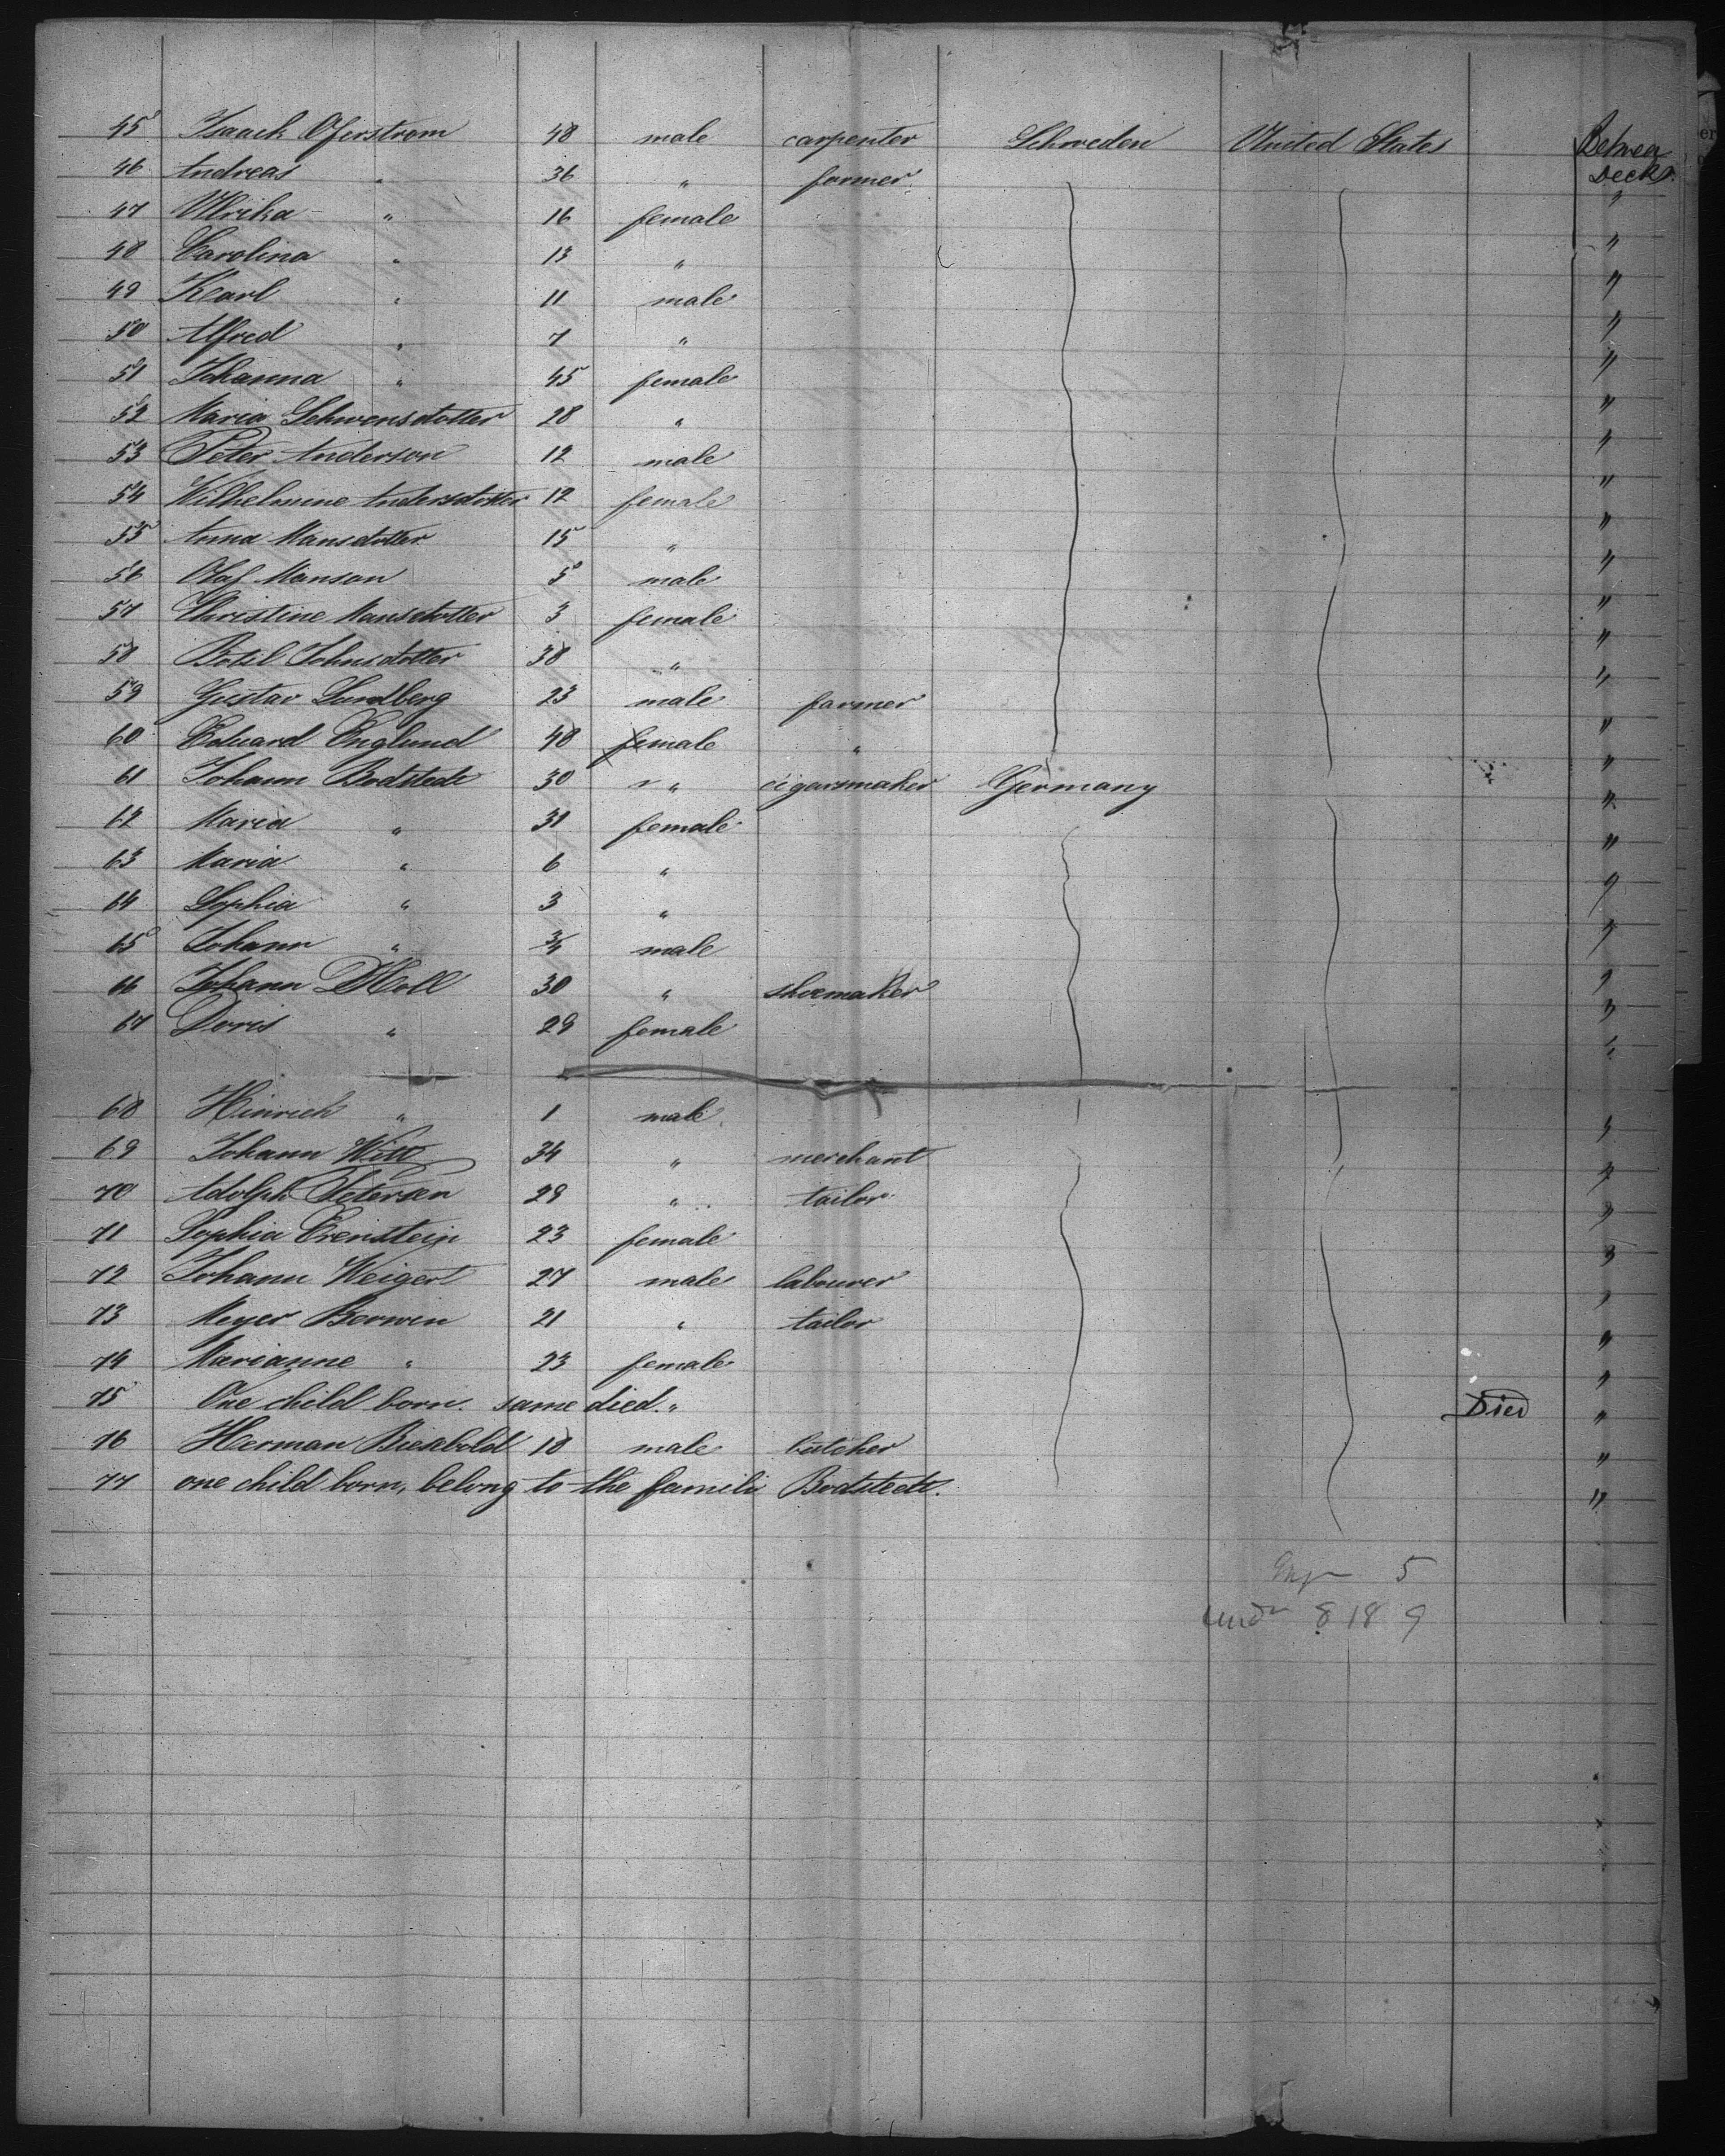 45 Isaack Oferstrom 48 male carpenter Schweden United States Between Deck.
46 Andreas " 36 " farmer "
47 Ulrika " 16 female "
48 Carolina " 13 " "
49 Karl " 11 male "
50 Alfred " 7 " "
51 Johanna " 45 female "
52 Maria Schwensdotter 28 " "
53 Peter Anderson 12 male "
54 Wilhelmine Andersdotter 12 female "
55 Anna Mansdotter 15 " "
56 Olaf Manson 5 male "
57 Christine Mansdotter 3 female "
58 Botil Johnsdotter 38 " "
59 Gustav Lundberg 23 male farmer "
60 Eduard Englund 48 female " "
61 Johann Bodstedt 30 " cigarsmaker Germany "
62 Maria " 31 female "
63 Maria " 6 " "
64 Sophia " 3 " "
65 Johann " 3/4 male "
66 Johann Moll 30 " shoemaker "
67 Doris " 29 female "
68 Hinrich " 1 male "
69 Johann Witt 34 " merchant "
70 Adolph Petersen 29 " tailor "
71 Sophia Erenstein 23 female "
72 Johann Weigert 27 male labourer "
73 Meyer Berwin 21 " tailor "
74 Marianne " 23 female "
75 One child born. same died. " Died "
76 Herman Biesabold 18 male butcher "
77 one child born, belong to the famili Bodstedt. "
5
und 8 18 9